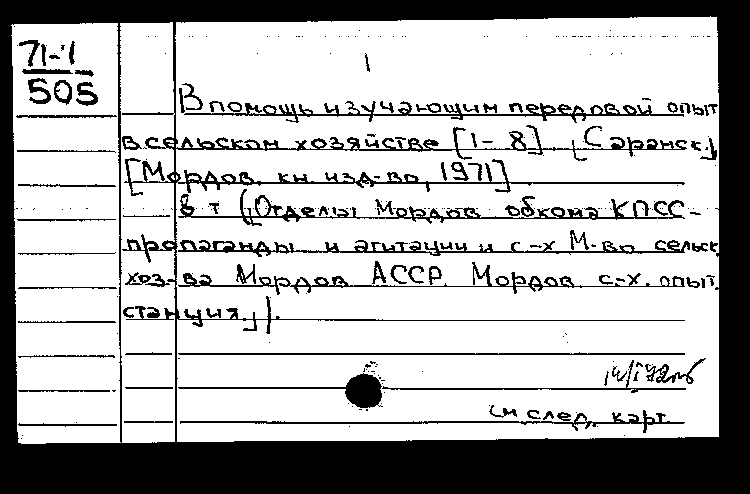 71-4
505
1
В помощь изучающим передовой опыт
в сельском хозяйстве [1-8] [Саранск]
[Мордов. кн. изд-во, 1971].
8 т ([Отделы Мордов. обкома КПСС -
пропаганды и агитации и с.-х. М-во сельск.
хоз-ва Мордов. АССР. Мордов. с.-х. опыт.
станция.]).
см. след. карт.